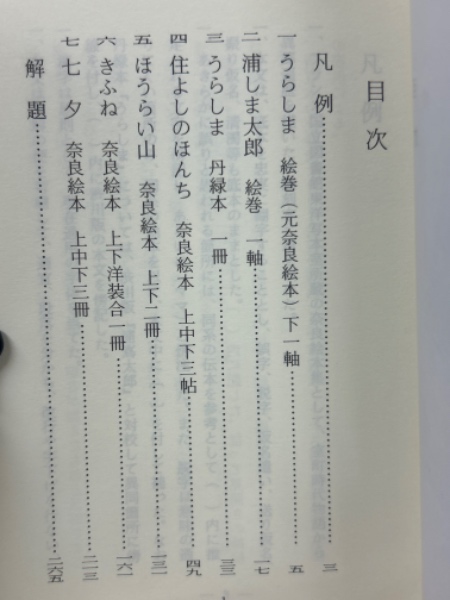 目次
凡例……三
一 うらしま 絵巻（元奈良絵本）下一軸……五
二 浦しま太郎 絵巻 一軸……一七
三 うらしま 丹緑本 一冊……三三
四 住よしのほんち 奈良絵本 上中下三帖……四九
五 ほうらい山 奈良絵本 上下二冊……一三一
六 きふね 奈良絵本 上下洋装合一冊……一六一
七 七夕 奈良絵本 上中下三冊……二一三
解題……二六五